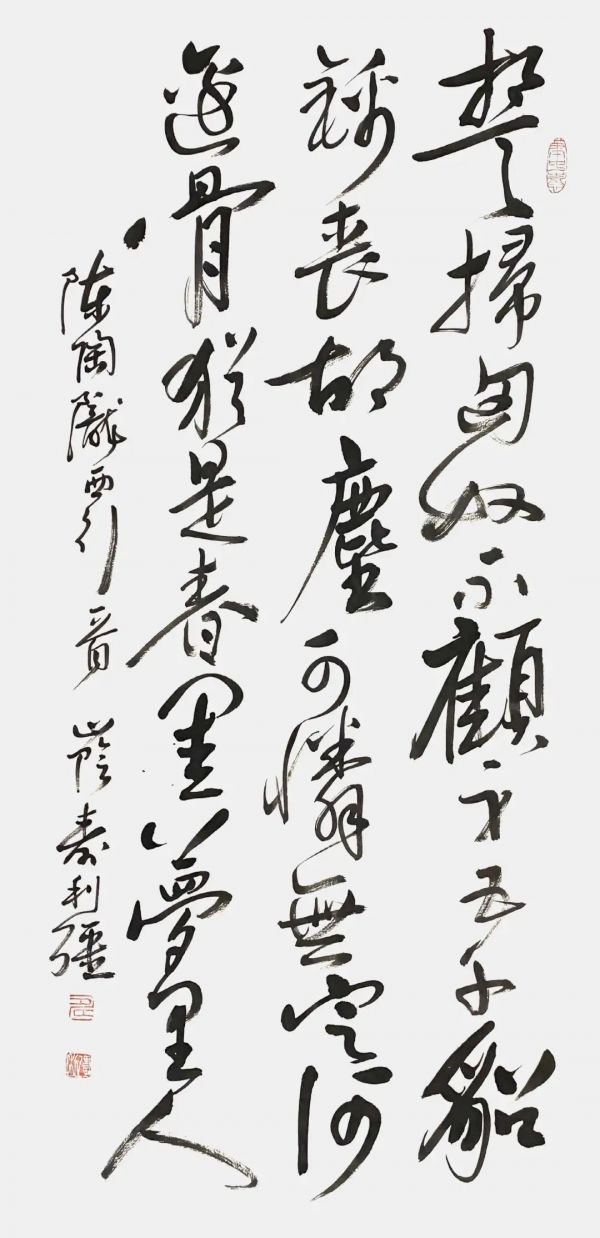 誓掃匈奴不顧身五千貂
錦喪胡塵可憐無定河
邊骨猶是春閨夢里人
陈陶隴西行一首 山陰寿利彊